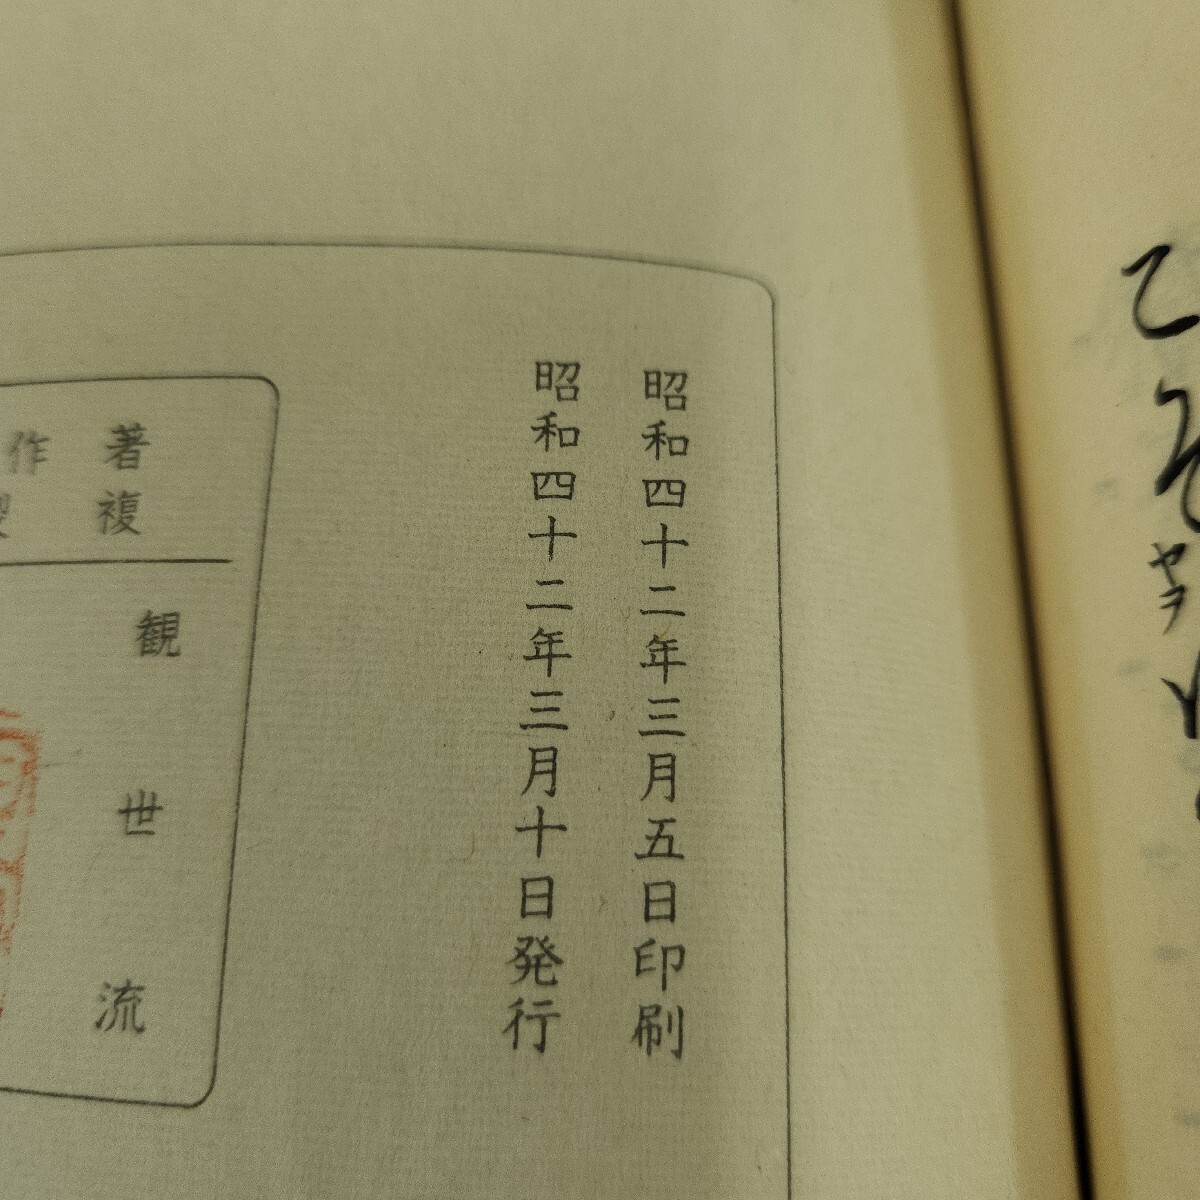 昭和四十二年三月五日印刷
昭和四十二年三月十日発行
著作
複製
観世流